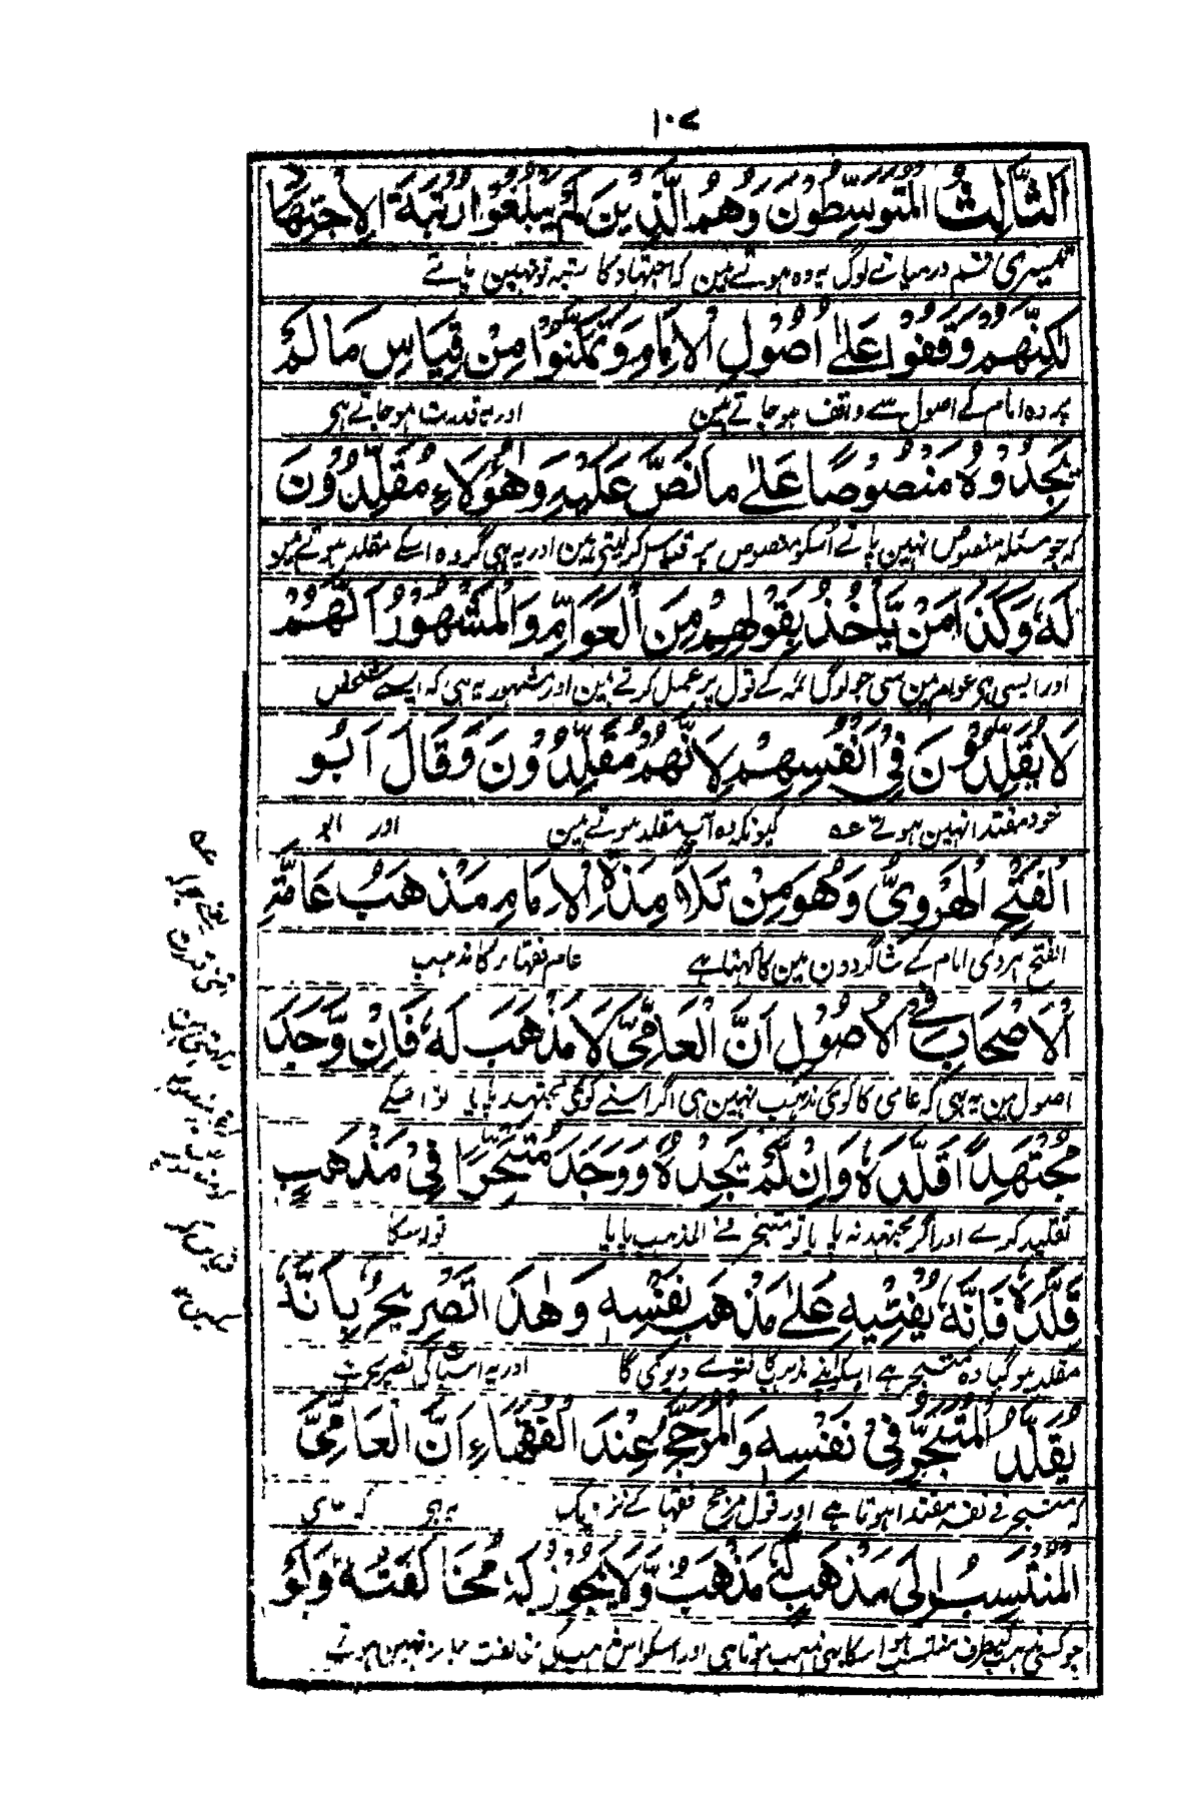 ۱۰۷
الثَّالِثُ الْمُتَوَسِّطُوْنَ وَهُمُ الَّذِيْنَ لَمْ يَبْلُغُوْا رُتْبَةَ الْاِجْتِهَادِ
تیسری قسم درمیانے لوگ یہ وہ ہوتے ہین کہ اجتہاد کا رتبہ تو نہین پاتے
لٰكِنَّهُمْ وَقَفُوْا عَلٰى اُصُوْلِ الْاِمَامِ وَتَمَكَّنُوْا مِنْ قِيَاسِ مَا لَمْ
پر وہ امام کے اصول سے واقف ہو جاتے ہین اور یہ قدرت ہو جاتے ہی
يَجِدُوْهُ مَنْصُوْصًا عَلٰى مَا نَصَّ عَلَيْهِ وَهٰؤُلَاءِ مُقَلِّدُوْنَ
کہ جو مسئلہ منصوص نہین پاتے اُسکو منصوص پر قیاس کر لیتی ہین اور یہ ہی گروہ اسکے مقلد ہوتے ہین
لَهٗ وَكَذَا مَنْ يَّأْخُذُ بِقَوْلِهِمْ مِنَ الْعَوَامِّ وَالْمَشْهُوْرُ اَنَّهُمْ
اور ایسی ہی عوام مین سی جو لوگ ائمہ کے قول پر عمل کرتے ہین اور مشہور یہ ہی کہ ایسے شخص
لَا يُقَلَّدُوْنَ فِيْ اَنْفُسِهِمْ لِاَنَّهُمْ مُقَلِّدُوْنَ وَقَالَ اَبُو
خود مقتدا نہین ہوتے عہ کیونکہ وہ آپ مقلد ہوتے ہین اور ابو
الْفَتْحِ الْهَرَوِيُّ وَهُوَ مِنْ تَلَامِذَةِ الْاِمَامِ مَذْهَبُ عَامَّةِ
الفتح ہروی امام کے شاگردون مین کا کہتا ہے عام فقہا کا مذہب
الْاَصْحَابِ فِي الْاُصُوْلِ اَنَّ الْعَامِّيَّ لَا مَذْهَبَ لَهٗ فَاِنْ وَّجَدَ
اصول مین یہ ہی کہ عامی کا کوئی مذہب نہین ہی اگر اسنے کوئی مجتہد پایا تو اسکے
مُجْتَهِدًا قَلَّدَهٗ وَاِنْ لَّمْ يَجِدْهُ وَوَجَدَ مُتَبَحِّرًا فِيْ مَذْهَبٍ
تقلید کرے اور اگر مجتہد نہ پایا تو متبحر فے المذہب پایا تو اسکا
قَلَّدَهٗ فَاِنَّهٗ يُفْتِيْهِ عَلٰى مَذْهَبِ نَفْسِهٖ وَهٰذَا تَصْرِيْحٌ بِاَنَّهٗ
مقلد ہو گیا وہ متبحر ہے اسکو اپنے مذہب کا فتوے دیوی گا اور یہ اسبات کی تصریح ہے
يُقَلَّدُ الْمُتَبَحِّرُ فِيْ نَفْسِهٖ وَالْمُرَجَّحُ عِنْدَ الْفُقَهَاءِ اَنَّ الْعَامِّيَّ
کہ متبحر فے نفسہ مقتدا ہوتا ہے اور قول مرجح فقہا کے نزدیک یہ ہی کہ عامی
الْمُنْتَسِبَ اِلٰى مَذْهَبٍ لَهٗ مَذْهَبٌ وَّلَا يَجُوْزُ لَهٗ مُخَالَفَتُهٗ وَلَوْ
جو کسی مذہب کیطرف منتسب ہو اسکا ہی مذہب ہوتا ہی اور اسکو اس مذہب کی مخالفت جائز نہین ہوتے
عہ